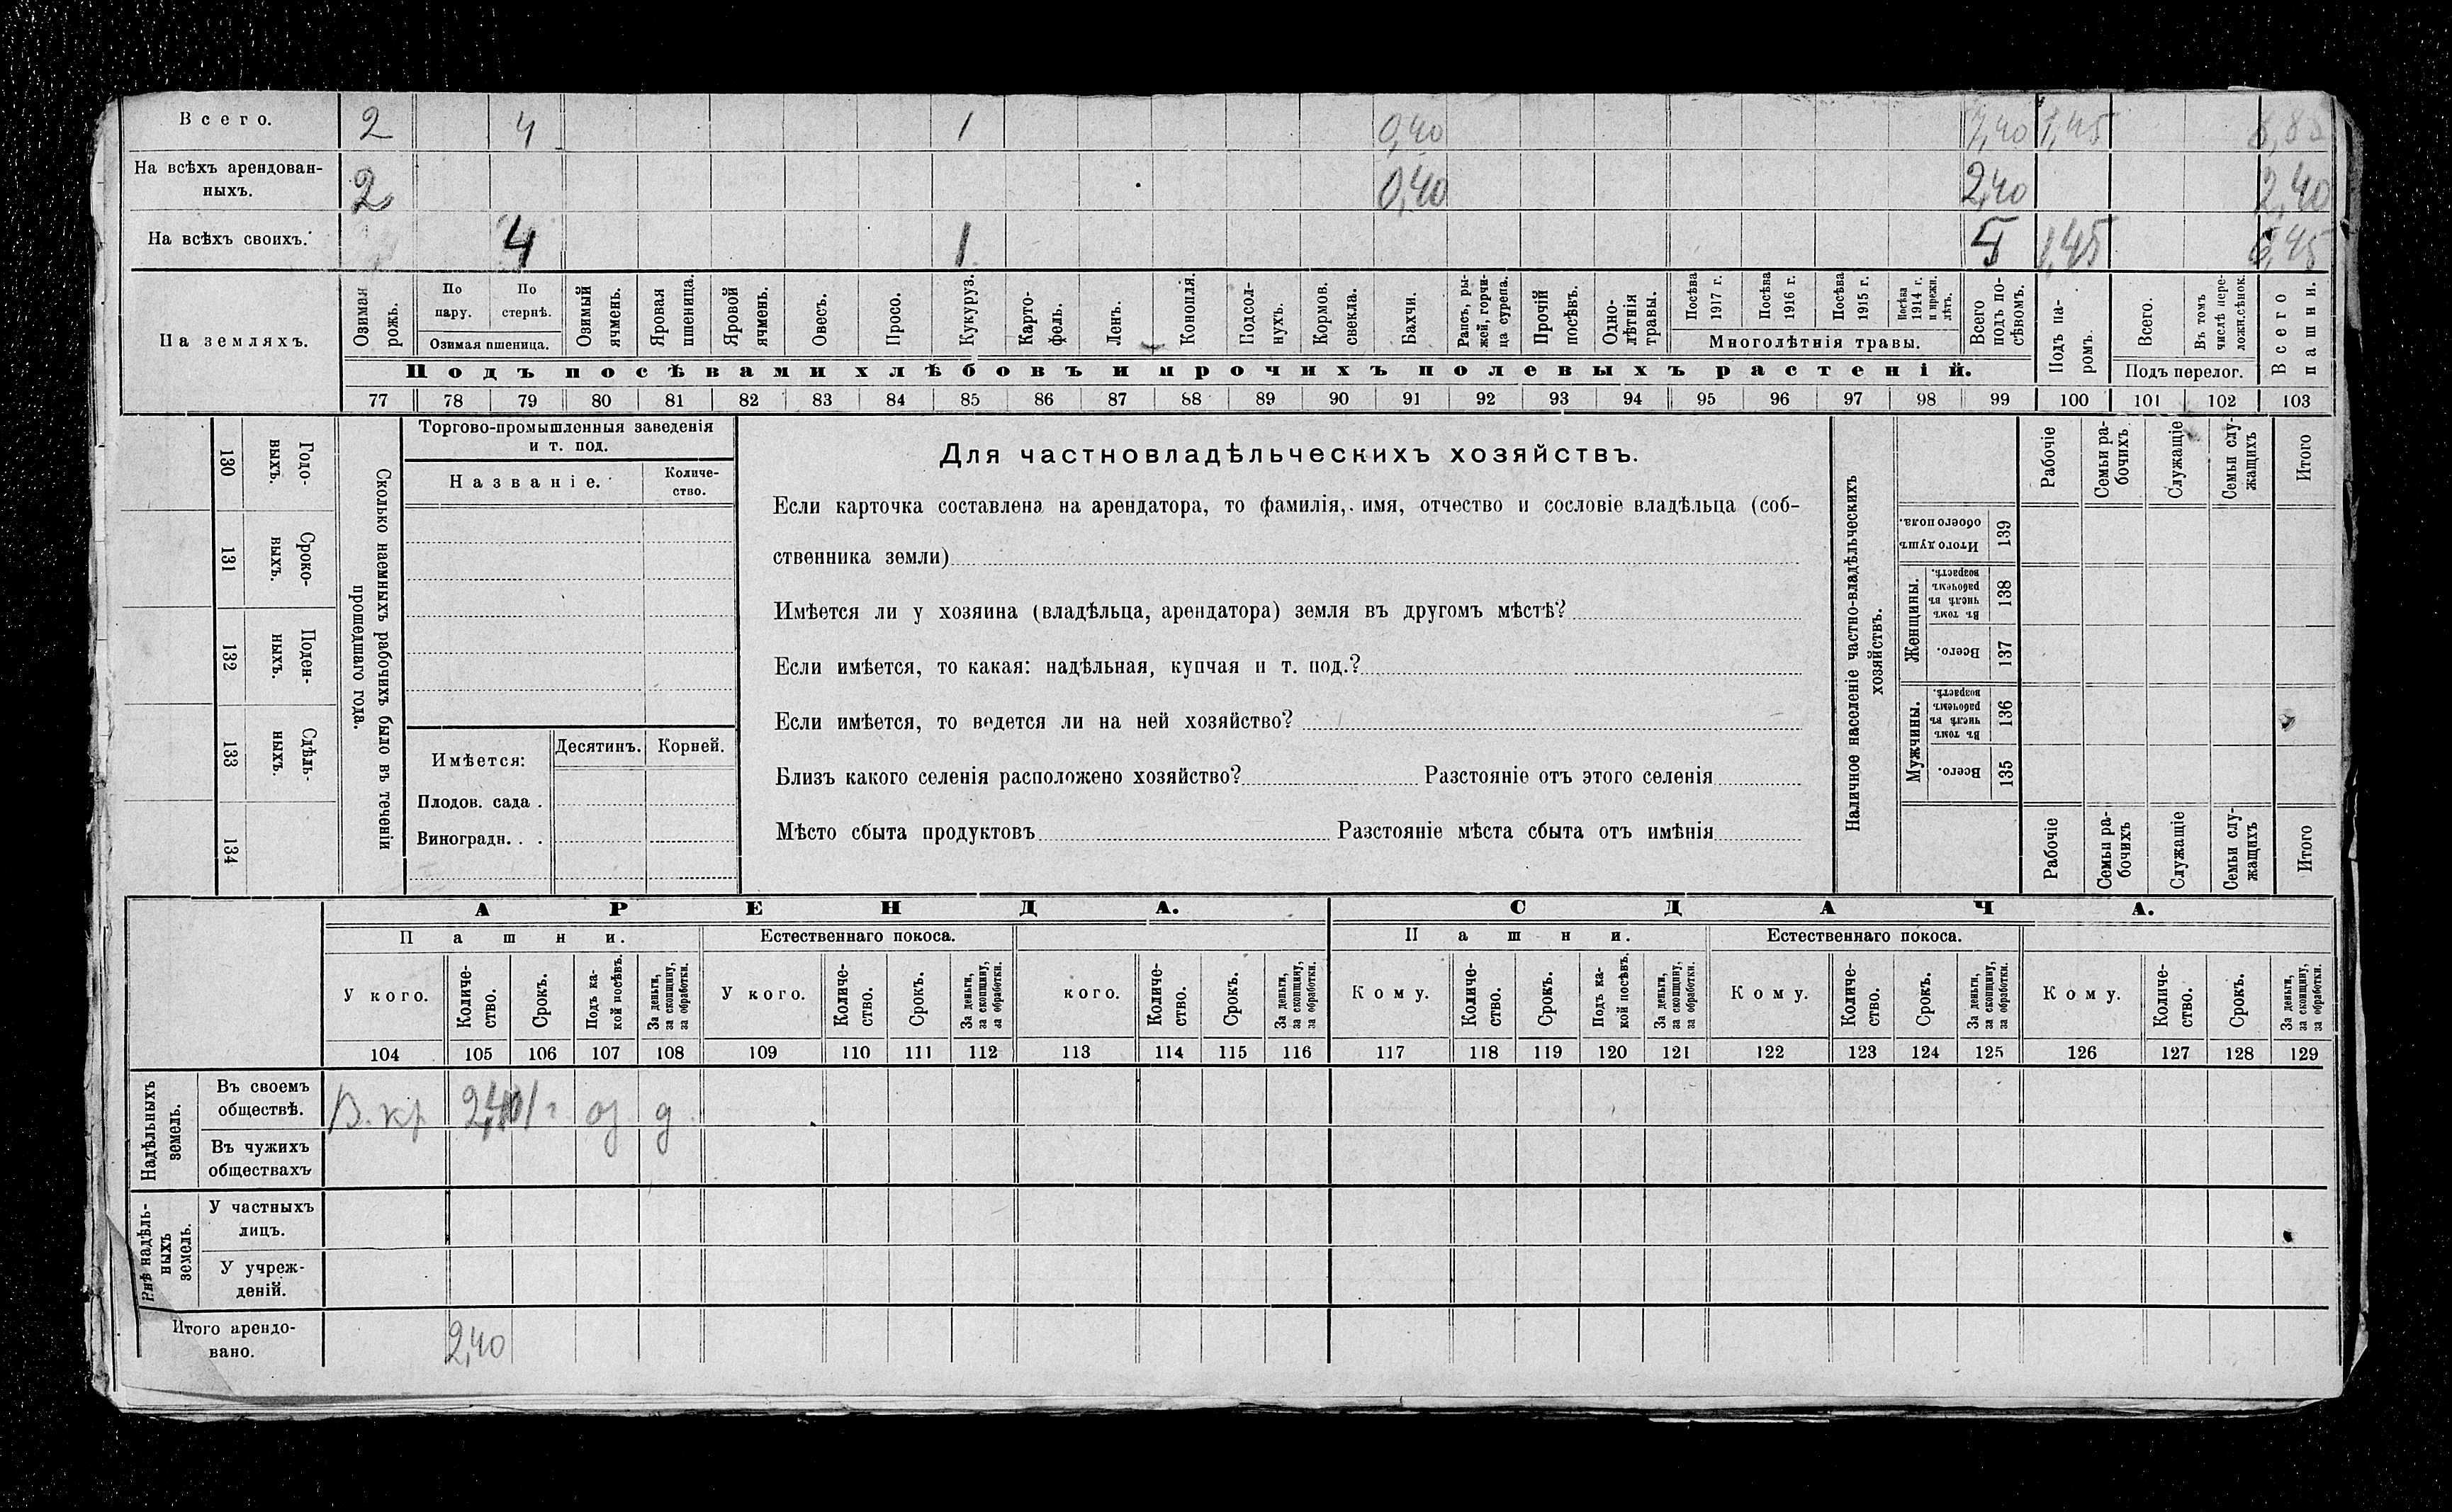 Всего. 2 4 1 0,40 7,40 1,45 8,85
На всѣхъ арендован-
ныхъ. 2 0,40 2,40 2,40
На всѣхъ своихъ. 4 1 5 1,45 6,45
На земляхъ.
Озимая рожь.
По пару.
По стернѣ.
Озимая пшеница.
Озимый ячмень.
Яровая пшеница.
Яровой ячмень.
Овесъ.
Просо.
Кукуруз.
Карто-
фель.
Ленъ.
Конопля.
Подсол-
нухъ.
Кормов. свекла.
Бахчи.
Рапсъ, ры-
жей, горчи-
ца сурепа.
Прочій посѣвъ.
Одно-
лѣтнія травы.
Посѣва 1917 г.
Посѣва 1916 г.
Посѣва 1915 г.
Посѣва 1914 г. и прежн. лѣтъ.
Многолѣтнія травы.
Всего подъ по-
сѣвомъ.
Подъ па-
ромъ.
Всего.
Въ томъ числѣ пере-
ложн.сѣнок.
Подъ перелог.
Всего пашни.
Подъ посѣвами хлѣбовъ и прочихъ полевыхъ растеній.
77 78 79 80 81 82 83 84 85 86 87 88 89 90 91 92 93 94 95 96 97 98 99 100 101 102 103
130 Годо-
выхъ.
131 Сроко-
выхъ.
132 Поден-
ныхъ.
133 Сдѣль-
ныхъ.
134
Сколько наемныхъ рабочихъ было въ теченіи
прошедшаго года.
Торгово-промышленныя заведенія
и т. под.
Названіе.
Количе-
ство.
Имѣется:
Десятинъ.
Корней.
Плодов. сада .
Виноградн. . .
Для частновладѣльческихъ хозяйствъ.
Если карточка составлена на арендатора, то фамилія, имя, отчество и сословіе владѣльца (соб-
ственника земли)
Имѣется ли у хозяина (владѣльца, арендатора) земля въ другомъ мѣстѣ?
Если имѣется, то какая: надѣльная, купчая и т. под.?
Если имѣется, то ведется ли на ней хозяйство?
Близъ какого селенія расположено хозяйство? Разстояніе отъ этого селенія
Мѣсто сбыта продуктовъ Разстояніе мѣста сбыта отъ имѣнія
Наличное населеніе частно-владѣльческихъ
хозяйствъ.
Рабочіе
Семьи ра-
бочихъ
Служащіе
Семьи слу-
жащихъ
Итого
Итого душъ
обоего пола.
139
Женщины.
Въ томъ числѣ въ рабочемъ возрастѣ.
138
Всего.
137
Мужчины.
Въ томъ числѣ въ рабочемъ возрастѣ.
136
Всего.
135
Рабочіе
Семьи ра-
бочихъ
Служащіе
Семьи слу-
жащихъ
Итого
АРЕНДА.
СДАЧА.
Пашни.
Естественнаго покоса.
Пашни.
Естественнаго покоса.
У кого.
Количе-
ство.
Срокъ.
Подъ ка-
кой посѣвъ.
За деньги,
за скопщину,
за обработки.
У кого.
Количе-
ство.
Срокъ.
За деньги,
за скопщину,
за обработки.
кого.
Количе-
ство.
Срокъ.
За деньги,
за скопщину,
за обработки.
Кому.
Количе-
ство.
Срокъ.
Подъ ка-
кой посѣвъ.
За деньги,
за скопщину,
за обработки.
Кому.
Количе-
ство.
Срокъ.
За деньги,
за скопщину,
за обработки.
Кому.
Количе-
ство.
Срокъ.
За деньги,
за скопщину,
за обработки.
104 105 106 107 108 109 110 111 112 113 114 115 116 117 118 119 120 121 122 123 124 125 126 127 128 129
Надѣльныхъ
земель.
Въ своемъ
обществѣ. В. кр 2,40 1 г. оз д.
Въ чужихъ
обществахъ
Внѣ надѣль-
ныхъ
земель.
У частныхъ
лицъ.
У учреж-
деній.
Итого арендо-
вано. 2,40